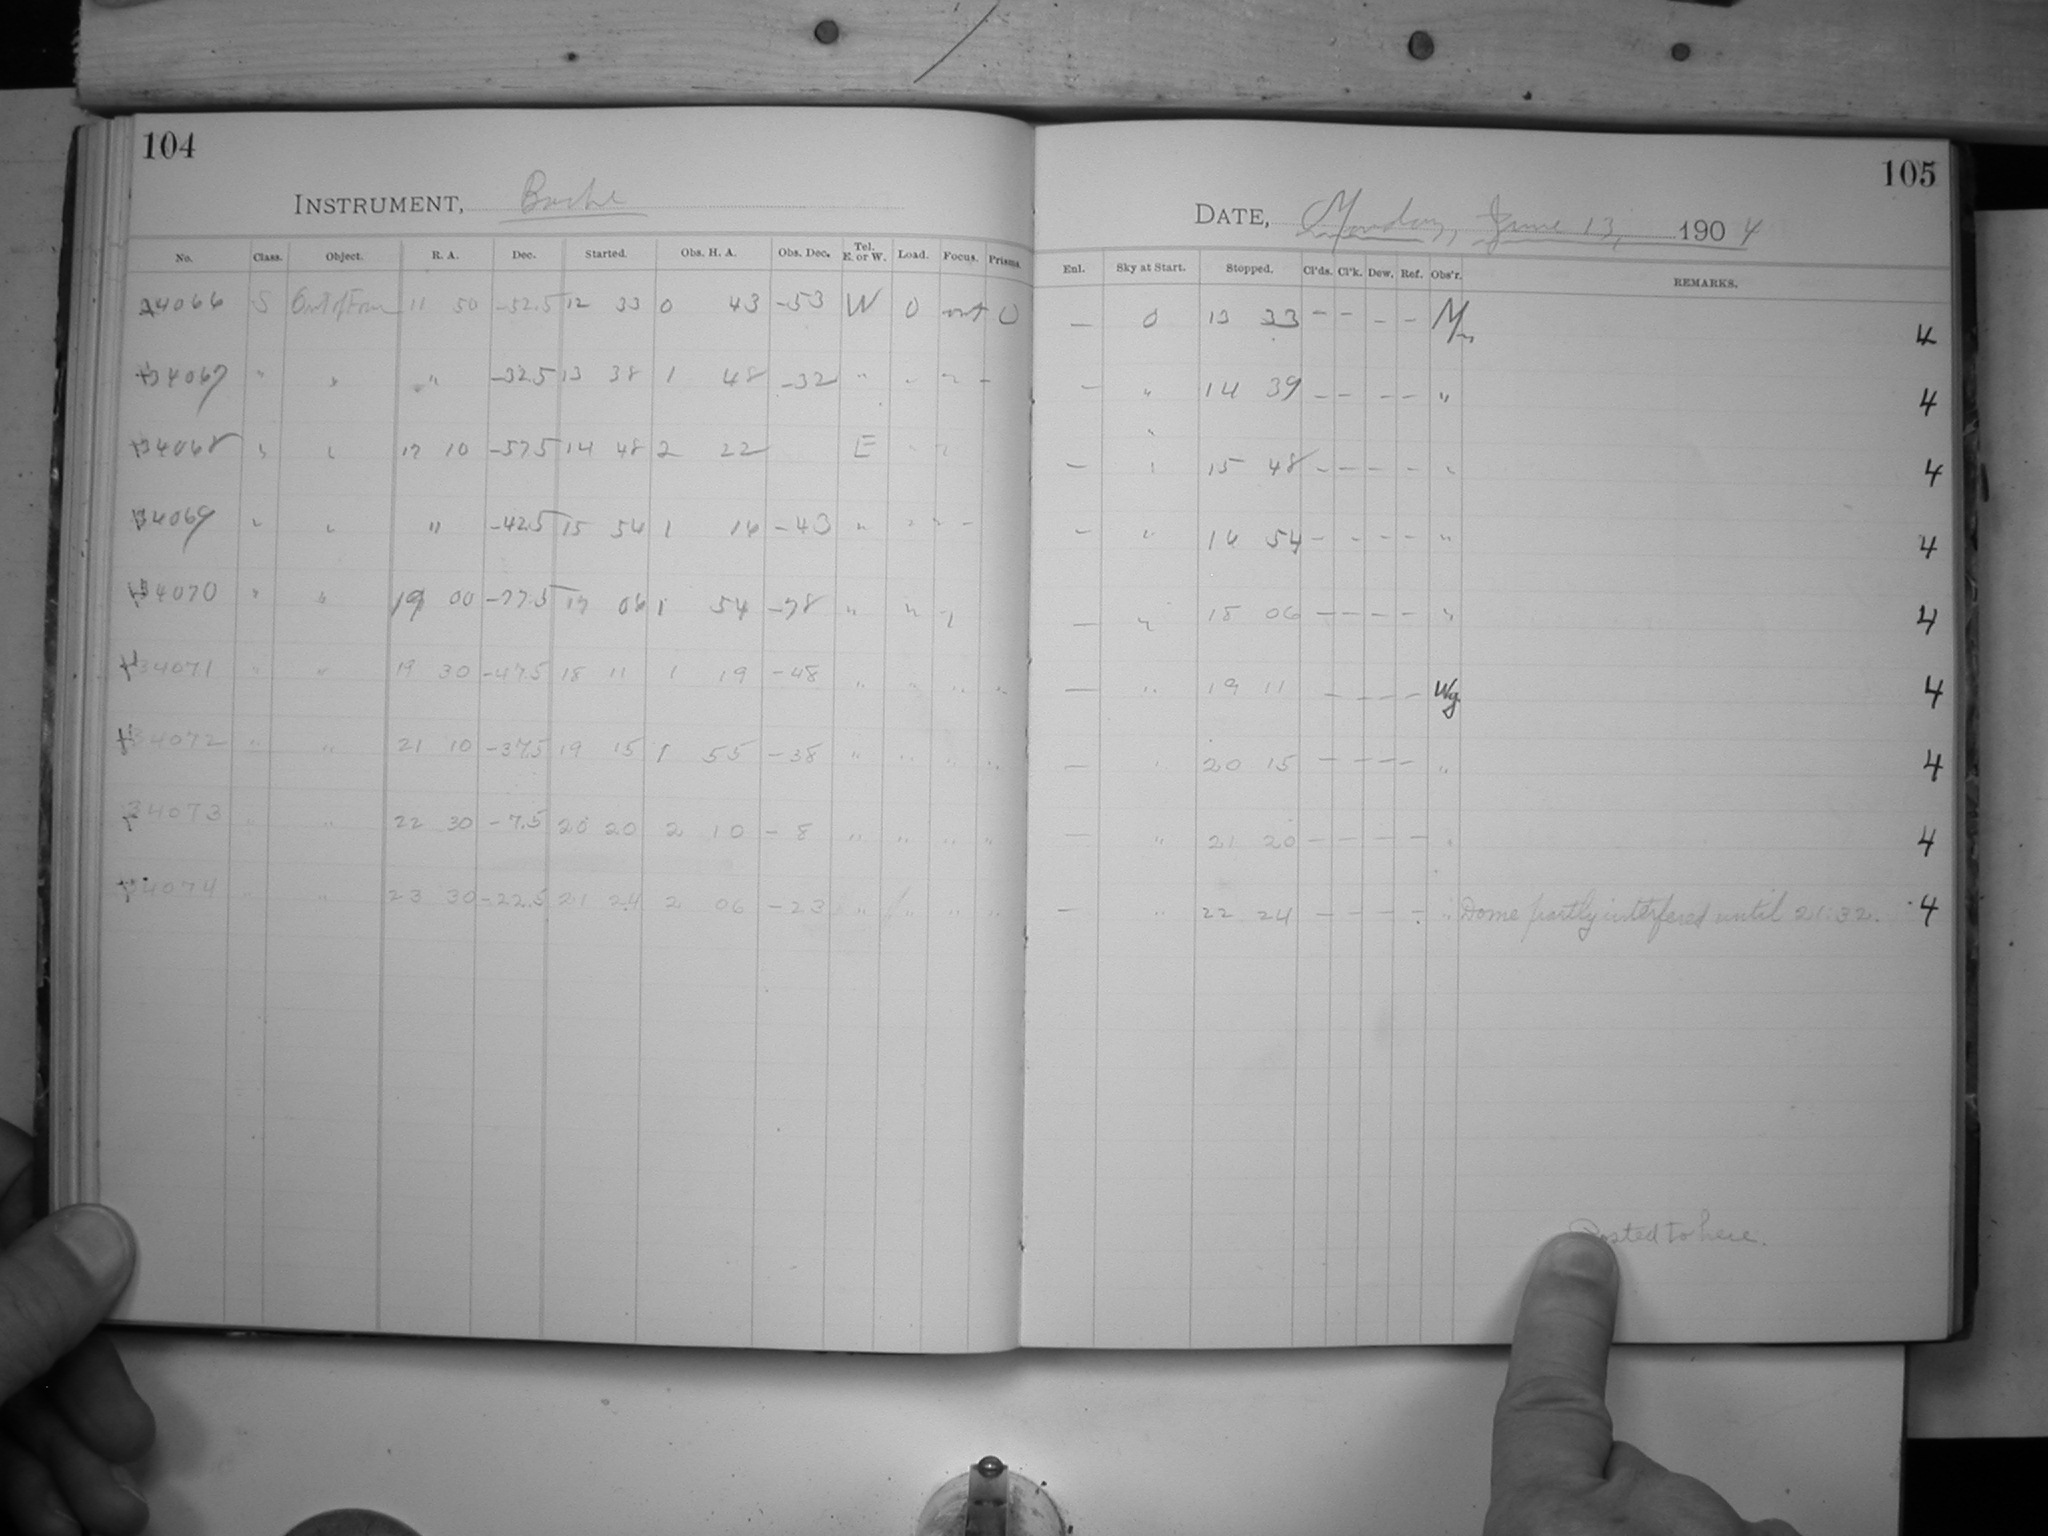 104
INSTRUMENT, Bache
No. Class. Object. R. A. Dec. Started. Obs. H. A. Obs. Dec. Tel. E. or W. Load. Focus. Prisms.
34066 S Out of Focus 11 50 -52.5 12 33 0 43 -53 W 0 out 0
34067 " " " -32.5 13 38 1 48 -32 " " " –
34068 " " 17 10 -57.5 14 48 2 22 E " "
34069 " " " -42.5 15 54 1 16 -43 " " " –
34070 " " 19 00 -77.5 17 06 1 54 -78 " " "
34071 " " 19 30 -47.5 18 11 1 19 -48 " " " "
34072 " " 21 10 -37.5 19 15 1 55 -38 " " " "
34073 " " 22 30 -7.5 20 20 2 10 -8 " " " "
34074 " " 23 30 -22.5 21 24 2 06 -23 " " " "
105
DATE, Monday, June 13, 1904
Enl. Sky at Start. Stopped. Cl'ds. Cl'k. Dew. Ref. Obs'r. REMARKS.
— 0 13 33 – – – – M 4
— " 14 39 – – – – " 4
— " 15 48 – – – – " 4
— " 16 54 – – – – " 4
— " 18 06 – – – – " 4
— " 19 11 – – – – Wg 4
— " 20 15 – – – – " 4
— " 21 20 – – – – " 4
— " 22 24 – – – – " Dome partly interfered until 21:32. 4
Posted to here.